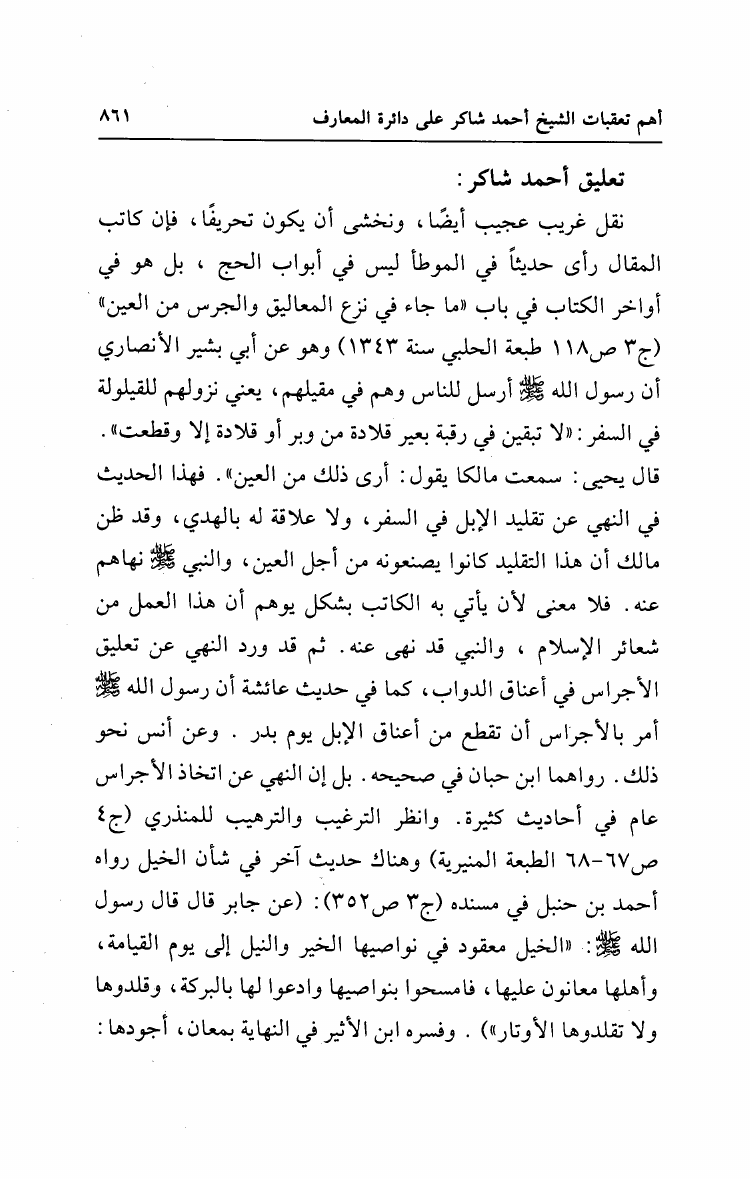 أهم تعقبات الشيخ أحمد شاكر على دائرة المعارف ٨٦١
تعليق أحمد شاكر :
نقل غريب عجيب أيضًا، ونخشى أن يكون تحريفًا، فإن كاتب
المقال رأى حديثاً في الموطأ ليس في أبواب الحج ، بل هو في
أواخر الكتاب في باب «ما جاء في نزع المعاليق والجرس من العين»
(ج٣ ص١١٨ طبعة الحلبي سنة ١٣٤٣) وهو عن أبي بشير الأنصاري
أن رسول الله ﷺ أرسل للناس وهم في مقيلهم، يعني نزولهم للقيلولة
في السفر: «لا تبقين في رقبة بعير قلادة من وبر أو قلادة إلا وقطعت».
قال يحيى: سمعت مالكا يقول: أرى ذلك من العين». فهذا الحديث
في النهي عن تقليد الإبل في السفر، ولا علاقة له بالهدي، وقد ظن
مالك أن هذا التقليد كانوا يصنعونه من أجل العين، والنبي ﷺ نهاهم
عنه. فلا معنى لأن يأتي به الكاتب بشكل يوهم أن هذا العمل من
شعائر الإسلام ، والنبي قد نهى عنه. ثم قد ورد النهي عن تعليق
الأجراس في أعناق الدواب، كما في حديث عائشة أن رسول الله ﷺ
أمر بالأجراس أن تقطع من أعناق الإبل يوم بدر . وعن أنس نحو
ذلك. رواهما ابن حبان في صحيحه. بل إن النهي عن اتخاذ الأجراس
عام في أحاديث كثيرة. وانظر الترغيب والترهيب للمنذري (ج٤
ص٦٧-٦٨ الطبعة المنيرية) وهناك حديث آخر في شأن الخيل رواه
أحمد بن حنبل في مسنده (ج٣ ص٣٥٢): (عن جابر قال قال رسول
الله ﷺ: «الخيل معقود في نواصيها الخير والنيل إلى يوم القيامة،
وأهلها معانون عليها، فامسحوا بنواصيها وادعوا لها بالبركة، وقلدوها
ولا تقلدوها الأوتار») . وفسره ابن الأثير في النهاية بمعان، أجودها: